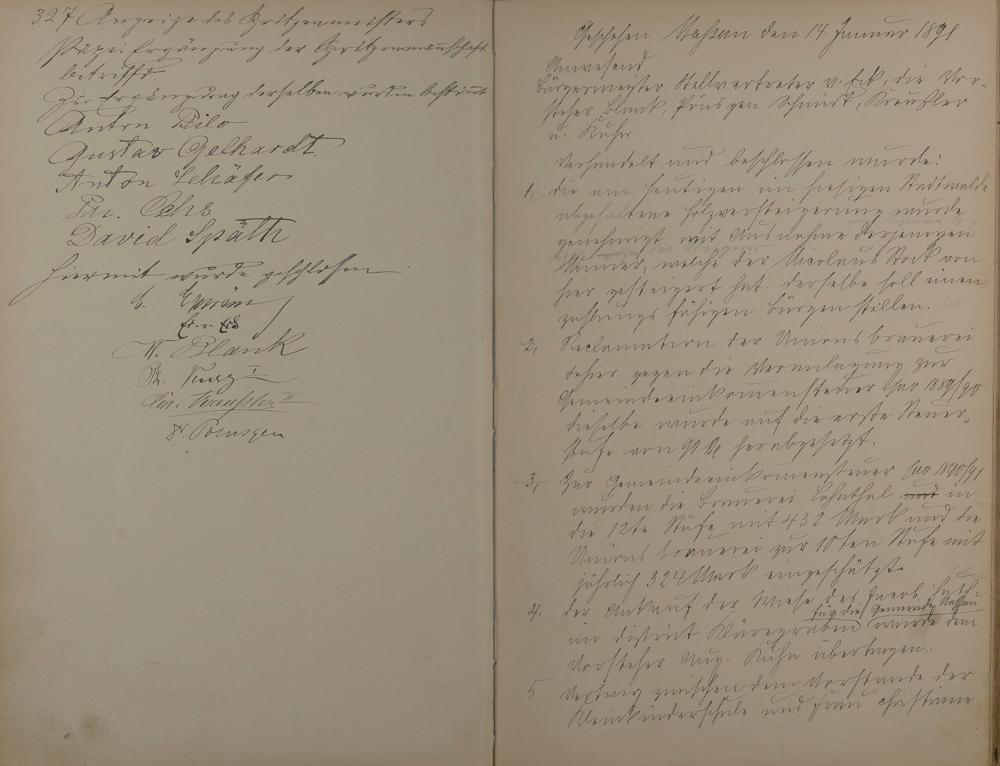 327 Anzeige des Spritzenmeisters
Ergänzung der Spritzenmannschaft
betreffs.
Zur Ergänzung derselben wurden bestimmt
Anton Pilo
Gustav Gelhardt
Anton Schäfer
Fdr. Ochs
David Späth
Hiermit wurde geschlossen
E.
Ed. v. Eck
W. Blank
Ph.
Chr. Kreußler II
Poensgen
Geschehen Nassau den 14 Januar 1891
Anwesend
Bürgermeister Stellvertreter v. Eck, die Vor-
steher Blank, Pönsgen Schmidt, Kreußler
u. Kuhn
Verhandelt und beschlossen wurde:
1, die am heutigen im hiesigen Stadtwalde
abgehaltene Holzversteigerung wurde
genehmigt mit Ausnahme derjenigen
Nummer, welche der Nicolaus Rock von
hier gesteigert hat. derselbe soll einen
zahlungsfähigen Bürgen stellen.
2, Reclamation der Unionsbrauerei
dahier gegen die Veranlagung zur
Gemeindeeinkommensteuer pro 1889/90
dieselbe wurde auf die erste Steuer-
stufe von 90 M herabgesetzt.
3, Zur Gemeindeeinkommensteuer pro 1890/91
wurden die Brauerei Lahnthal und in
die 12te Stufe mit 432 Mark und die
Unionsbrauerei zur 10ten Stufe mit
jährlich 324 Mark eingeschätzt.
4. der Ankauf der Wiese des Jacob
für die Gemeinde Nassau
im District wurde dem
Vorsteher Aug. Kuhn übertragen.
5 Vertrag zwischen dem Vorstande der
Kleinkinderschule und Frau Christiane